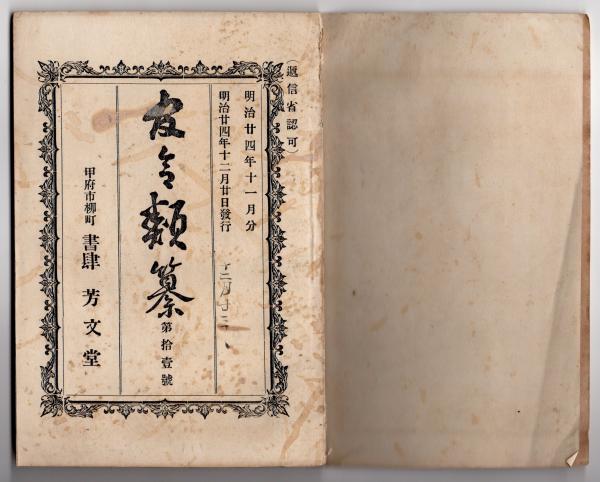 (遞信省認可)
明治廿四年十一月分
明治廿四年十二月廿日發行
十二月廿二
官令類纂 第拾壹號
甲府市柳町 書肆 芳文堂